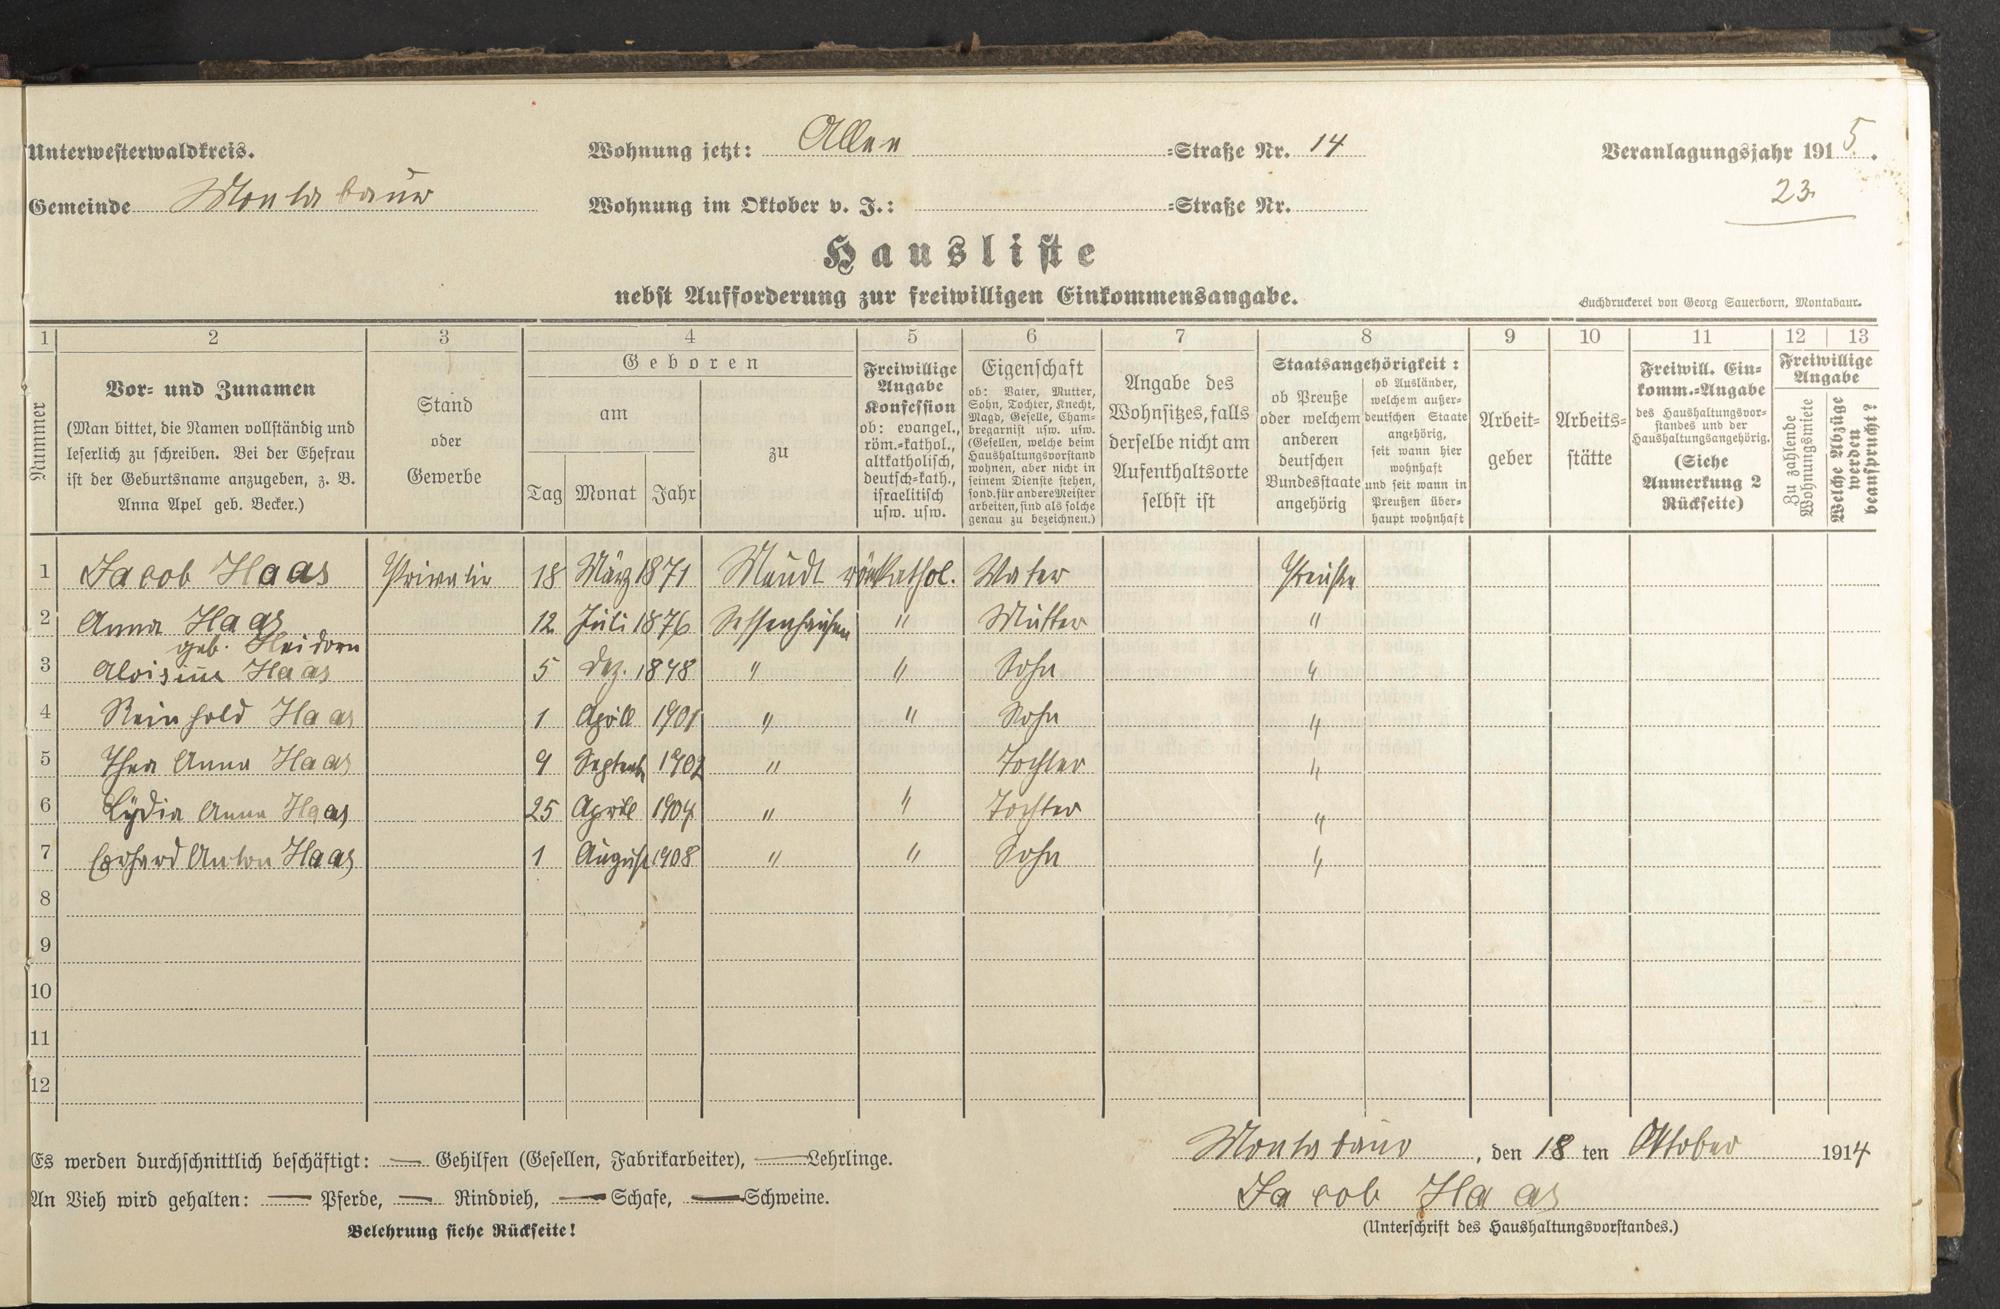 Unterwesterwaldkreis.
Wohnung jetzt: Allee =Straße Nr. 14
Veranlagungsjahr 1915.
Gemeinde Montabaur
Wohnung im Oktober v. J.: =Straße Nr.
23.
Hausliste
nebst Aufforderung zur freiwilligen Einkommensangabe.
Buchdruckerei von Georg Sauerborn, Montabaur.
1 2 3 4 5 6 7 8 9 10 11 12 13
Nummer
Vor- und Zunamen
(Man bittet, die Namen vollständig und
leserlich zu schreiben. Bei der Ehefrau
ist der Geburtsname anzugeben, z. B.
Anna Apel geb. Becker.)
Stand
oder
Gewerbe
Geboren
am
Tag Monat Jahr
zu
Freiwillige
Angabe
Konfession
ob: evangel.,
röm.-kathol.,
altkatholisch,
deutsch-kath.,
israelitisch
usw. usw.
Eigenschaft
ob: Vater, Mutter,
Sohn, Tochter, Knecht,
Magd, Geselle, Cham-
bregarnist usw. usw.
(Gesellen, welche beim
Haushaltungsvorstand
wohnen, aber nicht in
seinem Dienste stehen,
sond. für andere Meister
arbeiten, sind als solche
genau zu bezeichnen.)
Angabe des
Wohnsitzes, falls
derselbe nicht am
Aufenthaltsorte
selbst ist
Staatsangehörigkeit:
ob Preuße
oder welchem
anderen
deutschen
Bundesstaate
angehörig
ob Ausländer,
welchem außer-
deutschen Staate
angehörig,
seit wann hier
wohnhaft
und seit wann in
Preußen über-
haupt wohnhaft
Arbeit-
geber
Arbeits-
stätte
Freiwill. Ein-
komm.-Angabe
des Haushaltungsvor-
standes und der
Haushaltungsangehörig.
(Siehe
Anmerkung 2
Rückseite)
Freiwillige
Angabe
Zu zahlende
Wohnungsmiete
Welche Abzüge
werden
gewünscht?
1 Jacob Haas Privatier 18 März 1871 Meudt röm kathol. Vater Preuße
2 Anna Haas 12 Juli 1876 Sessenhausen " Mutter "
geb. Heidorn
3 Aloisius Haas 5 Dez. 1898 " " Sohn "
4 Reinhold Haas 1 April 1901 " " Sohn "
5 Thea Anna Haas 9 Septemb 1902 " Tochter "
6 Lydia Anna Haas 25 April 1904 " " Tochter "
7 Erhard Anton Haas 1 August 1908 " " Sohn "
8
9
10
11
12
Es werden durchschnittlich beschäftigt: — Gehilfen (Gesellen, Fabrikarbeiter), — Lehrlinge.
An Vieh wird gehalten: — Pferde, — Rindvieh, — Schafe, — Schweine.
Belehrung siehe Rückseite!
Montabaur, den 18 ten Oktober 1914
Jacob Haas
(Unterschrift des Haushaltungsvorstandes.)